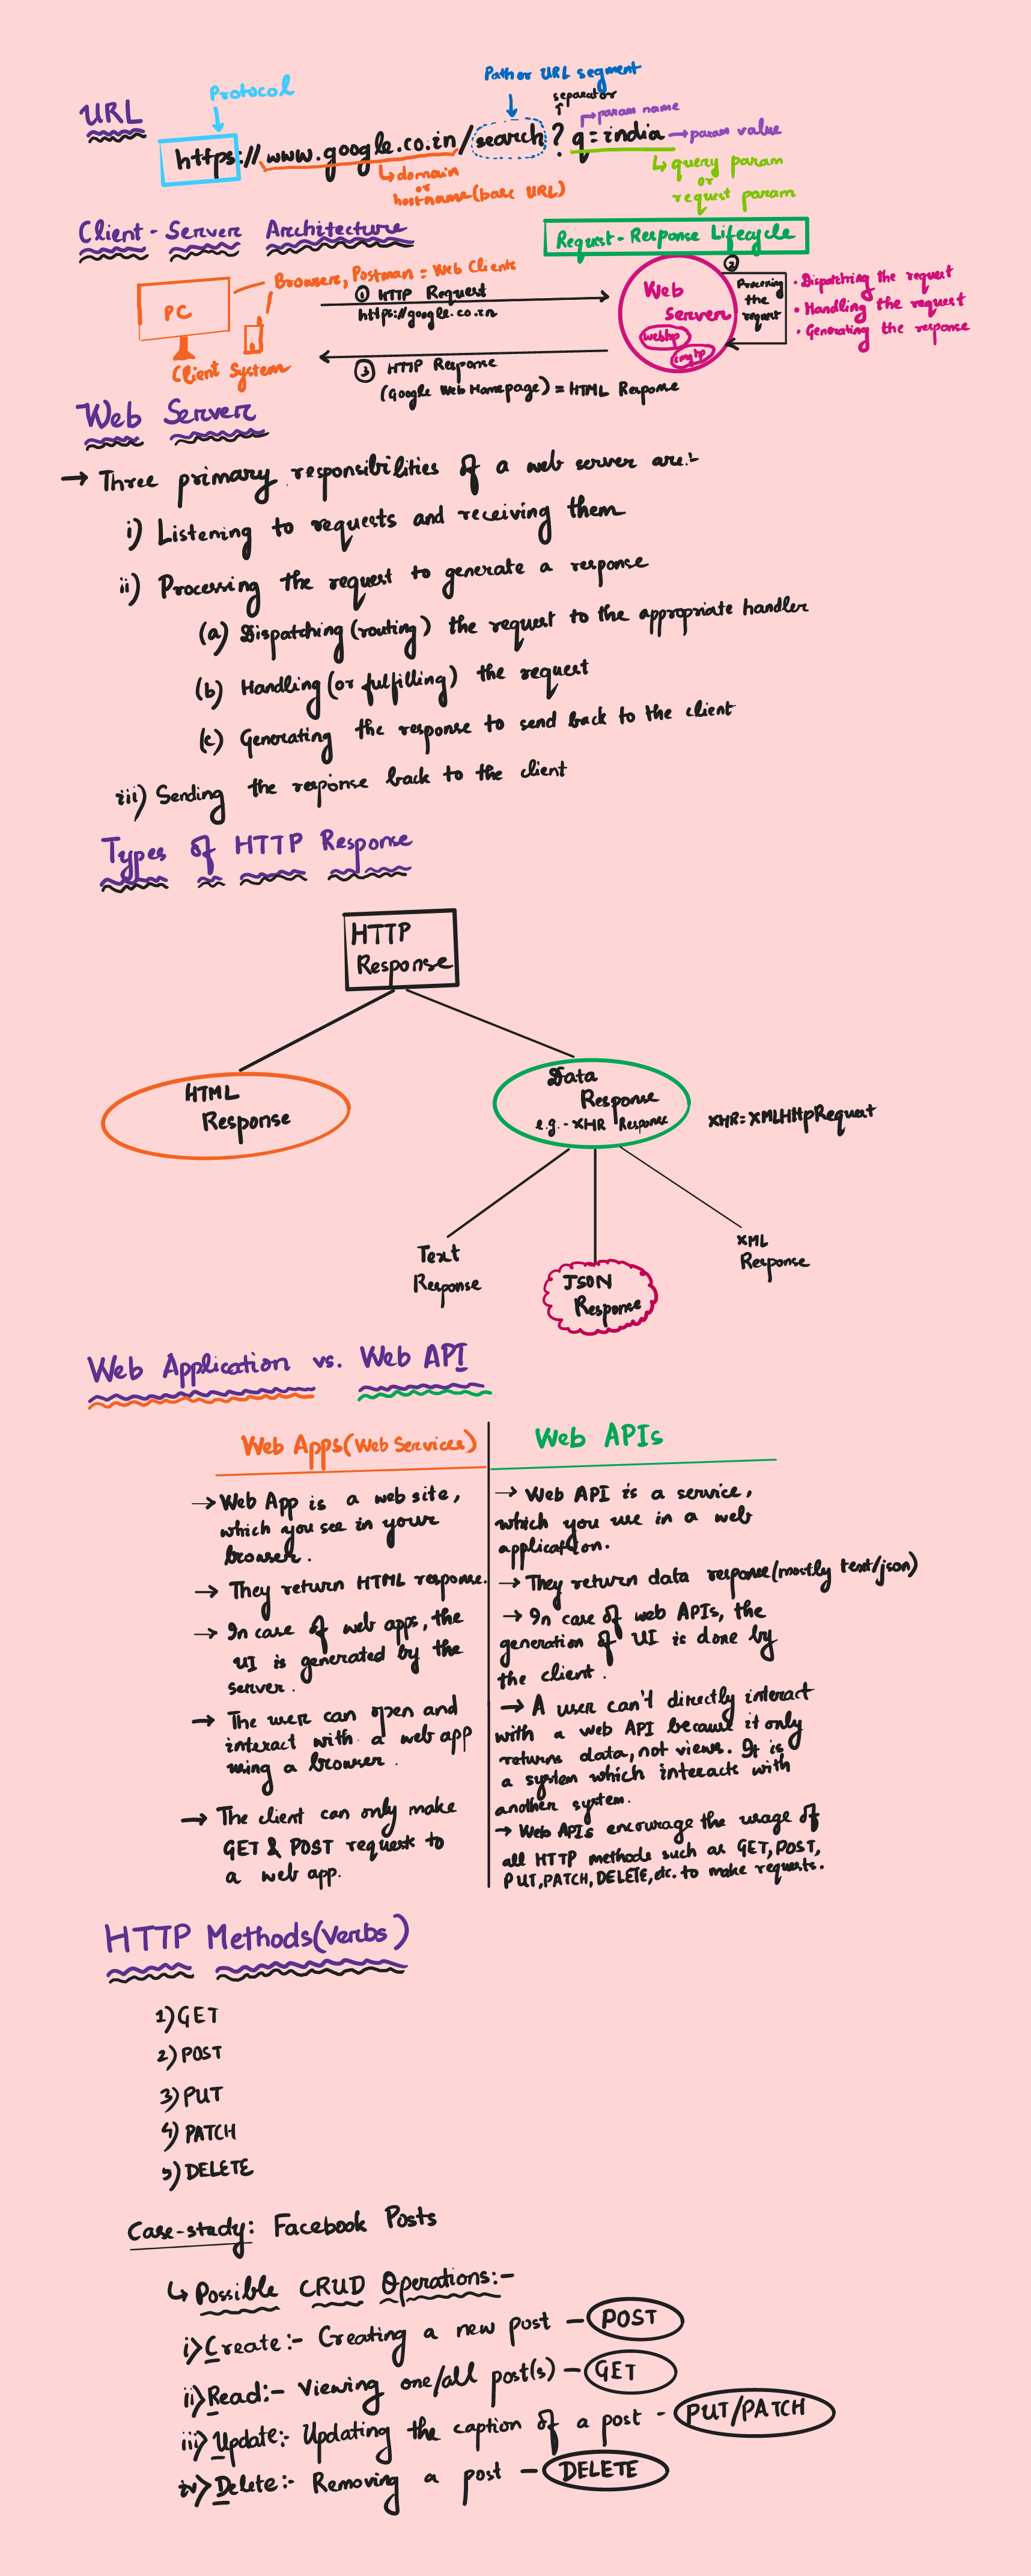 URL
Protocol
Path or URL segment
separator
param name
https://www.google.co.in/search?q=india
param value
domain
or
hostname (base URL)
query param
or
request param
Client-Server Architecture
Request-Response Lifecycle
PC
Browsers, Postman = Web Clients
Client System
① HTTP Request
https://google.co.in
③ HTTP Response
(Google Web Homepage) = HTML Response
Web
Server
webhp
imghp
②
Processing
the
request
• Dispatching the request
• Handling the request
• Generating the response
Web Server
→ Three primary responsibilities of a web server are:-
i) Listening to requests and receiving them
ii) Processing the request to generate a response
(a) Dispatching (routing) the request to the appropriate handler
(b) Handling (or fulfilling) the request
(c) Generating the response to send back to the client
iii) Sending the response back to the client
Types of HTTP Response
HTTP
Response
HTML
Response
Data
Response
e.g.- XHR Response
XHR = XMLHttpRequest
Text
Response
JSON
Response
XML
Response
Web Application vs. Web API
Web Apps (Web Services)
→ Web App is a website,
which you see in your
browser.
→ They return HTML response.
→ In case of web apps, the
UI is generated by the
server.
→ The user can open and
interact with a web app
using a browser.
→ The client can only make
GET & POST request to
a web app.
Web APIs
→ Web API is a service,
which you use in a web
application.
→ They return data response (mostly text/json)
→ In case of web APIs, the
generation of UI is done by
the client.
→ A user can't directly interact
with a web API because it only
returns data, not views. It is
a system which interacts with
another system.
→ Web APIs encourage the usage of
all HTTP methods such as GET, POST,
PUT, PATCH, DELETE, etc. to make requests.
HTTP Methods (Verbs)
1) GET
2) POST
3) PUT
4) PATCH
5) DELETE
Case-study: Facebook Posts
↳ Possible CRUD Operations:-
i) Create:- Creating a new post - POST
ii) Read:- Viewing one/all post(s) - GET
iii) Update:- Updating the caption of a post - PUT/PATCH
iv) Delete:- Removing a post - DELETE